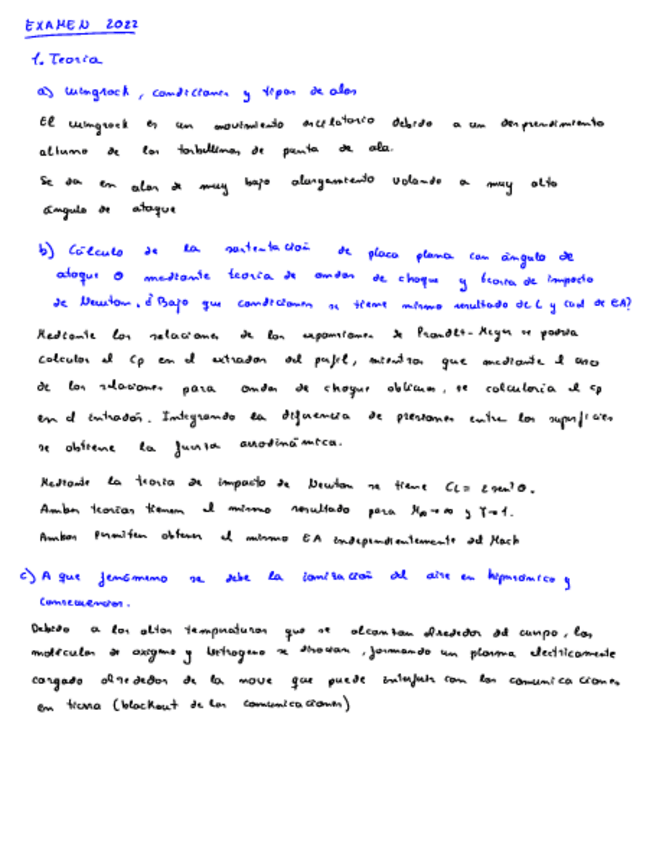 EXAMEN 2022
1. Teoria
a) Wingrock, condiciones y tipos de alas
El wingrock es un movimiento oscilatorio debido a un desprendimiento
alterno de los torbellinos de punta de ala.
Se da en alas de muy bajo alargamiento volando a muy alto
ángulo de ataque
b) Cálculo de la sustentación de placa plana con ángulo de
ataque θ mediante teoría de ondas de choque y teoría de impacto
de Newton. ¿Bajo que condiciones se tiene mismo resultado de L y cual de EA?
Mediante las relaciones de las expansiones de Prandtl-Meyer se podría
calcular el Cp en el extradós del perfil, mientras que mediante el uso
de las relaciones para ondas de choque oblicuas, se calcularía el cp
en el intradós. Integrando la diferencia de presiones entre las superficies
se obtiene la fuerza aerodinámica.
Mediante la teoría de impacto de Newton se tiene CL = 2 sen² θ.
Ambas teorías tienen el mismo resultado para M∞→∞ y γ→1.
Ambas permiten obtener el mismo EA independientemente del Mach
c) A que fenómeno se debe la ionización del aire en hipersónico y
consecuencias.
Debido a las altas temperaturas que se alcanzan alrededor del cuerpo, las
moléculas de oxígeno y nitrogeno se disocian, formando un plasma electricamente
cargado alrededor de la nave que puede interferir con las comunicaciones
en tierra (blackout de las comunicaciones)